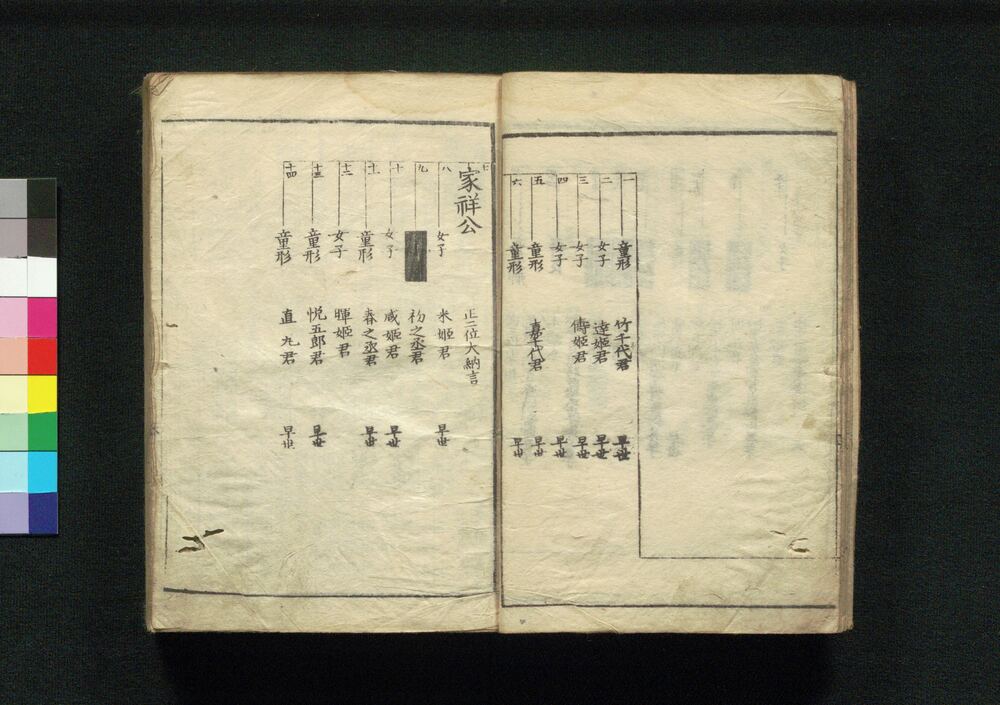 一 童形 竹千代君 早世
二 女子 達姫君 早世
三 女子 儔姫君 早世
四 女子 早世
五 童形 嘉千代君 早世
六 童形 早世
七 家祥公 正二位大納言
八 女子 米姫君 早世
九 初之丞君
十 女子 咸姫君 早世
十一 童形 春之丞君 早世
十二 女子 暉姫君
十三 童形 悦五郎君 早世
十四 童形 直丸君 早世